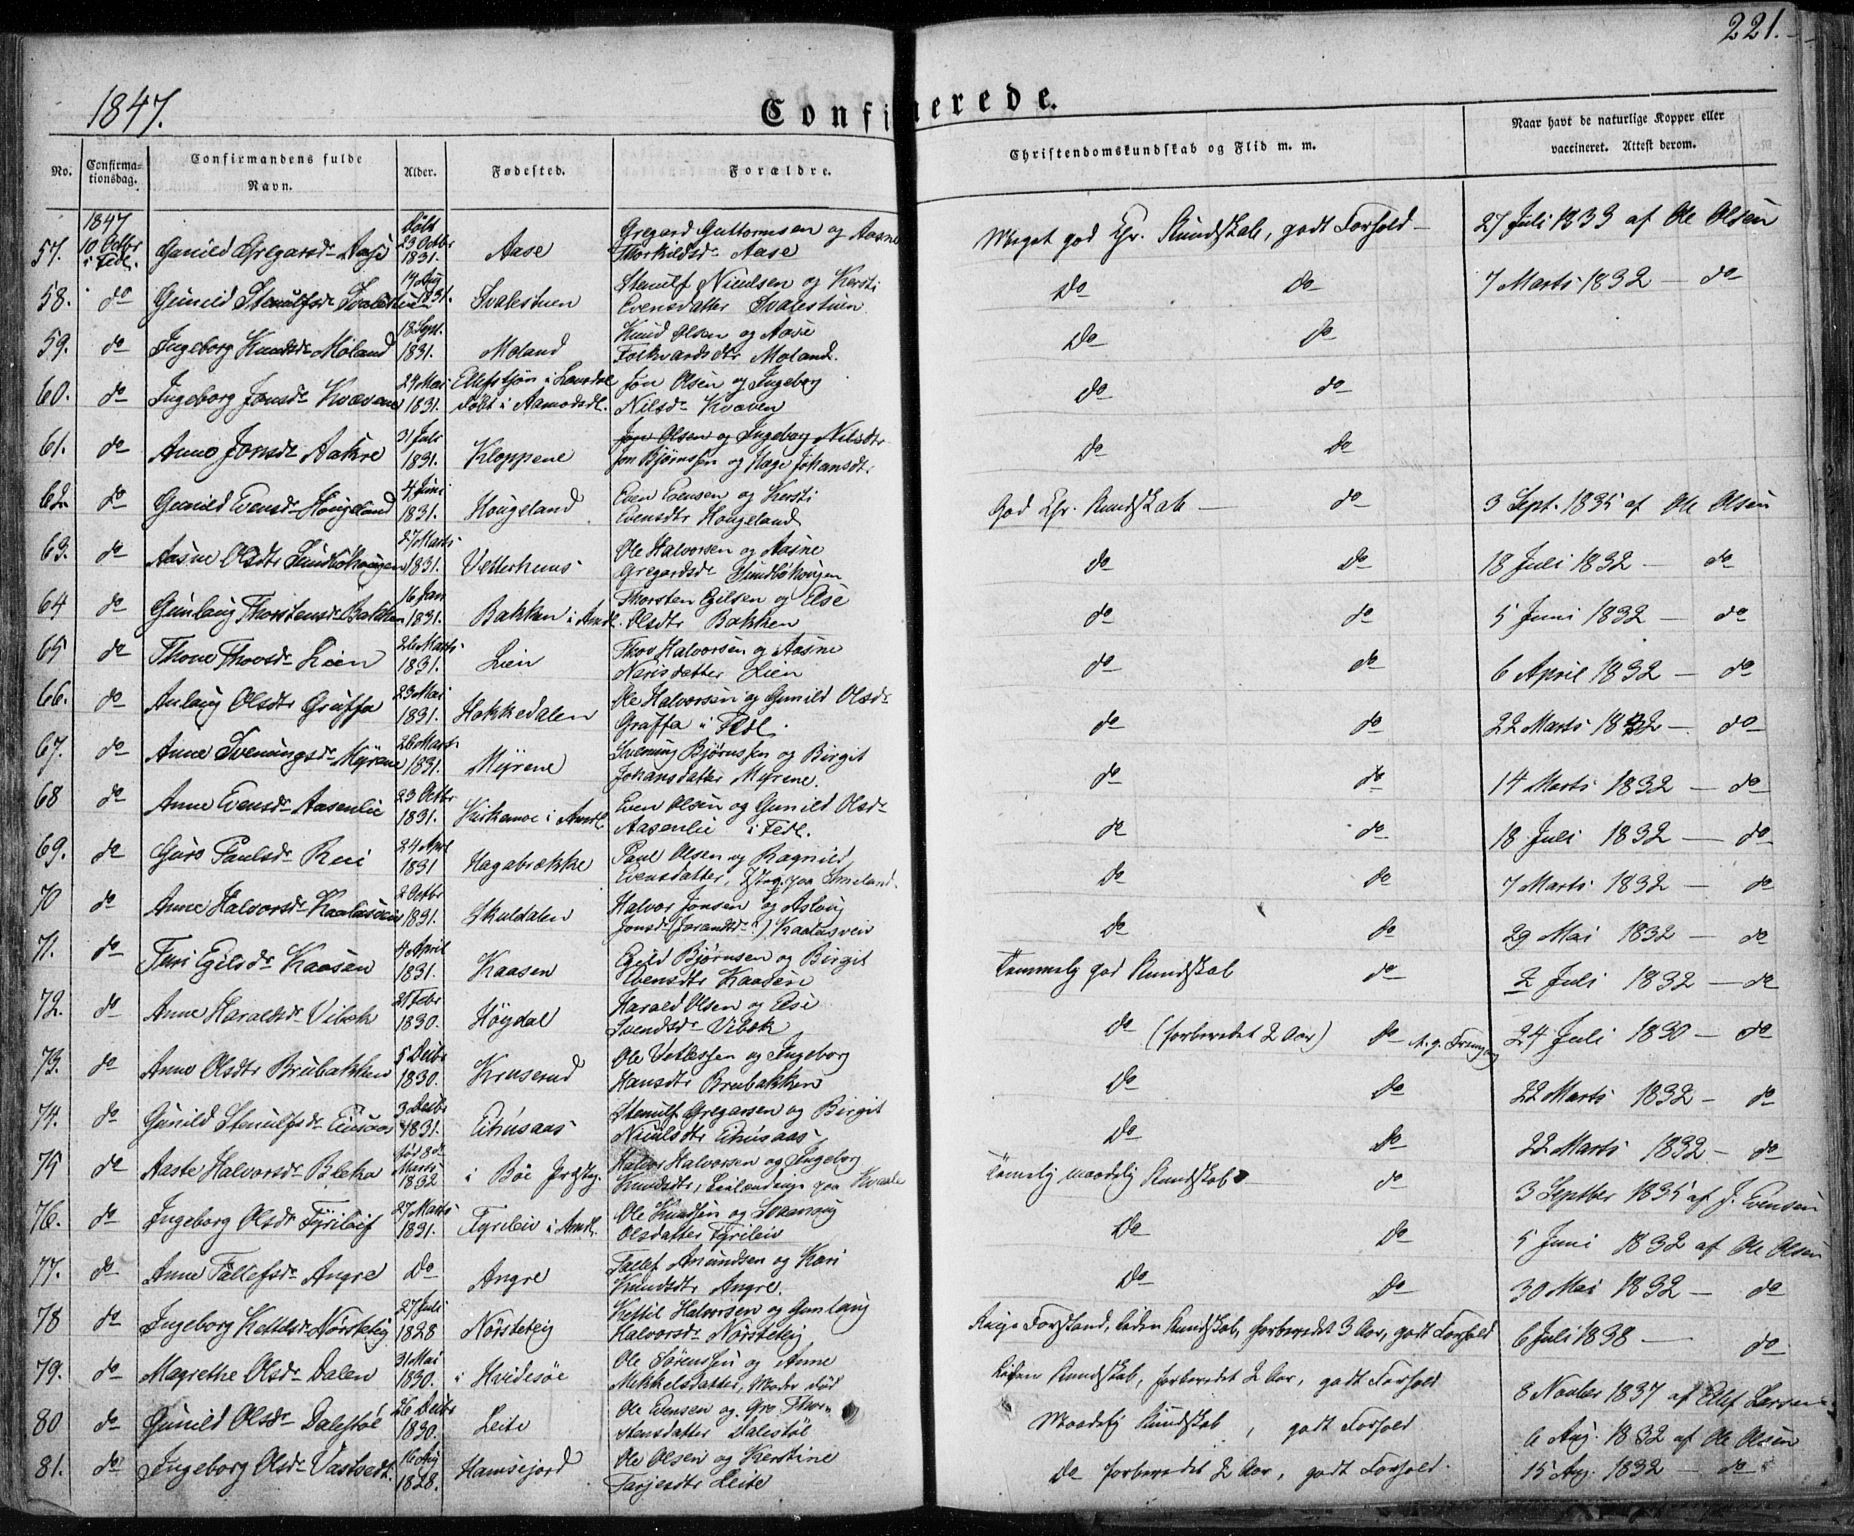 221.
1847.
Confirmerede.
No.
Confirmationsdag.
Confirmandens fulde Navn.
Alder.
Fødested.
Forældre.
Christendomskundskab og Flid m. m.
Naar havt de naturlige Kopper eller vaccineret. Attest derom.
57. 1847 10 Octbr i Fedl. Gunild Gregarsdr Aase Døbt 23 Octbr 1831. Aase Gregard Guttormsen og Aasne Thorkildsdr Aase Meget god Chr. Kundskab, godt Forhold 27 Juli 1833 af Ole Olsen
58. do Gunild Stenulfsdr Svalestuen 14 Aug 1831. Svalestuen Stenulf Nieulsen og Kersti Evensdatter Svalestuen Do do 7 Marts 1832 — do
59. do Ingeborg Knudsdr Moland 18 Sept. 1831. Moland Knud Olsen og Aase Folkvardsdtr Moland. Do do
60. do Ingeborg Jonsdr Kvæven 24 Mai 1831. i døbt i Aamodsdl. Jon Olsen og Ingeborg Nilsdr Kvæven do do
61. do Anne Jonsdr Aakre 31 Juli 1831. Kloppene Jon Olsen og Ingeborg Nilsdtr Jon Bjørnssen og Hæge Johansdtr Do do
62. do Gunild Evensdr Hougeland 4 Juni 1831. Hougeland Even Evensen og Kersti Evensdtr Hougeland God Chr. Kundskab — do 3 Sept. 1835 af Ole Olsen
63. do Aasne Olsdtr Sundbøhougen 27 Marts 1831. Vetterhuus Ole Halvorsen og Aasne Gregardsdr Sundbøhougen do do 18 Juli 1832 — do
64 do Gunlaug Thorstensdr Bakken 16 Jan 1831. Bakken i Amdl. Thorsten Egilsen og Else Olsdtr Bakken do do 5 Juni 1832 — do
65 do Thone Thovsdr Lien 26 Marts 1831. Lien Thov Halvorsen og Aasne Nerisdatter Lien do do 6 April 1832 — do
66. do Anlaug Olsdtr Graffa 23 Mai 1831. Hakkedalen Ole Halvorsen og Gunild Olsdr Graffa i Fedl. do do 22 Marts 1832 — do
67. do Anne Sveningsdr Myrene 26 Marts 1831. Myrene Svening Bjørnssen og Birgit Johansdatter Myrene. do do 14 Marts 1832 — do
68 do Anne Evensdr Aasenlie 23 Octbr 1831. Kirkemoe i Amdl. Even Olsen og Gunild Olsdr Aasenlie i Fedl. do do 18 Juli 1832 — do
69. do Guro Paulsdr Rui 24 Apr 1831 Hagabrække Paul Olsen og Ragnild Evensdatter, paa Smeland. do do 7 Marts 1832 — do
70 do Anne Halvorsdr Kaalaasvein 2 Octbr 1831. Skuldalen Halvor Jonsen og Aslaug Jonsdr (Jorandtsdr?) Kaalasvein do do 29 Mai 1832 — do
71. do Turi Egilsdr Kaasen 4 April 1831. Kaasen Egild Bjørnsen og Birgit Evensdtr Kaasen Temmelig god Kundskab do 2 Juli 1832 — do
72. do Anne Haraldsdr Vibæk 21 Febr 1830. Høydal Harald Olsen og Else Svendsdr Vibæk do (forberedet 2 Aar) do 24 Juli 1830 — do
73. do Anne Olsdtr Brubakken 5 Decbr 1830. Kruserud Ole Vetlessen og Ingeborg Hansdtr Brubakken Do do 22 Marts 1832 — do
74. do Gunild Stenulfsdr Eihusaas 3 Decbr 1831. Eihusaas Stenulf Gregarsen og Birgit Nieulsdtr Eihusaas Do do 22 Marts 1832 — do
75 do Aaste Halvorsdr Bleka født 8de Marts 1832 i Bøe Halvor Halvorsen og Ingeborg Knudsdtr, paa Kvaale Temmelig maadelig Kundskab do 3 Septber 1835 af J. Evensen
76. do Ingeborg Olsdr Tyrileif 27 Marts 1831. Tyrileiv i Amdl. Ole Knudsen og Svanaug Olsdatter Tyrileiv Do do 5 Juni 1832 af Ole Olsen
77. do Anne Tallefsdr Angre Do Angre Tallef Amundsen og Kari Knudsdtr Angre. Do Do 30 Mai 1832 — do
78 do Ingeborg Kettilsdr Nørsteteig 27 Juli 1828 Nørsteteig Kettil Halvorsen og Gunlaug Halvorsdr Nørsteteig Ringe Forstand, liden Kundskab, forberedet 3 Aar, godt Forhold 6 Juli 1838 — do
79. do Magrethe Olsdr Dalen 31 Mai 1830. i Hvidesøe Ole Sørenssen og Anne Mikkelsdatter, Moder død Liden Kundskab, forberedet 2 Aar, godt Forhold 8 Novber 1837 af
80 do Gunild Olsdr Dalestøl 26 Decbr 1830. Leite Ole Evensen og Gro Thorstensdatter Dalestøl Maadelig Kundskab, godt Forhold 6 Aug. 1832 af Ole Olsen
81. do Ingeborg Olsdr Vastvedt 16 Aug 1828. Hamsejord Ole Olsen og Kerstine Tarjesdtr Leite Do forberedet 2 Aar, godt Forhold. 15 Aug. 1832 — do